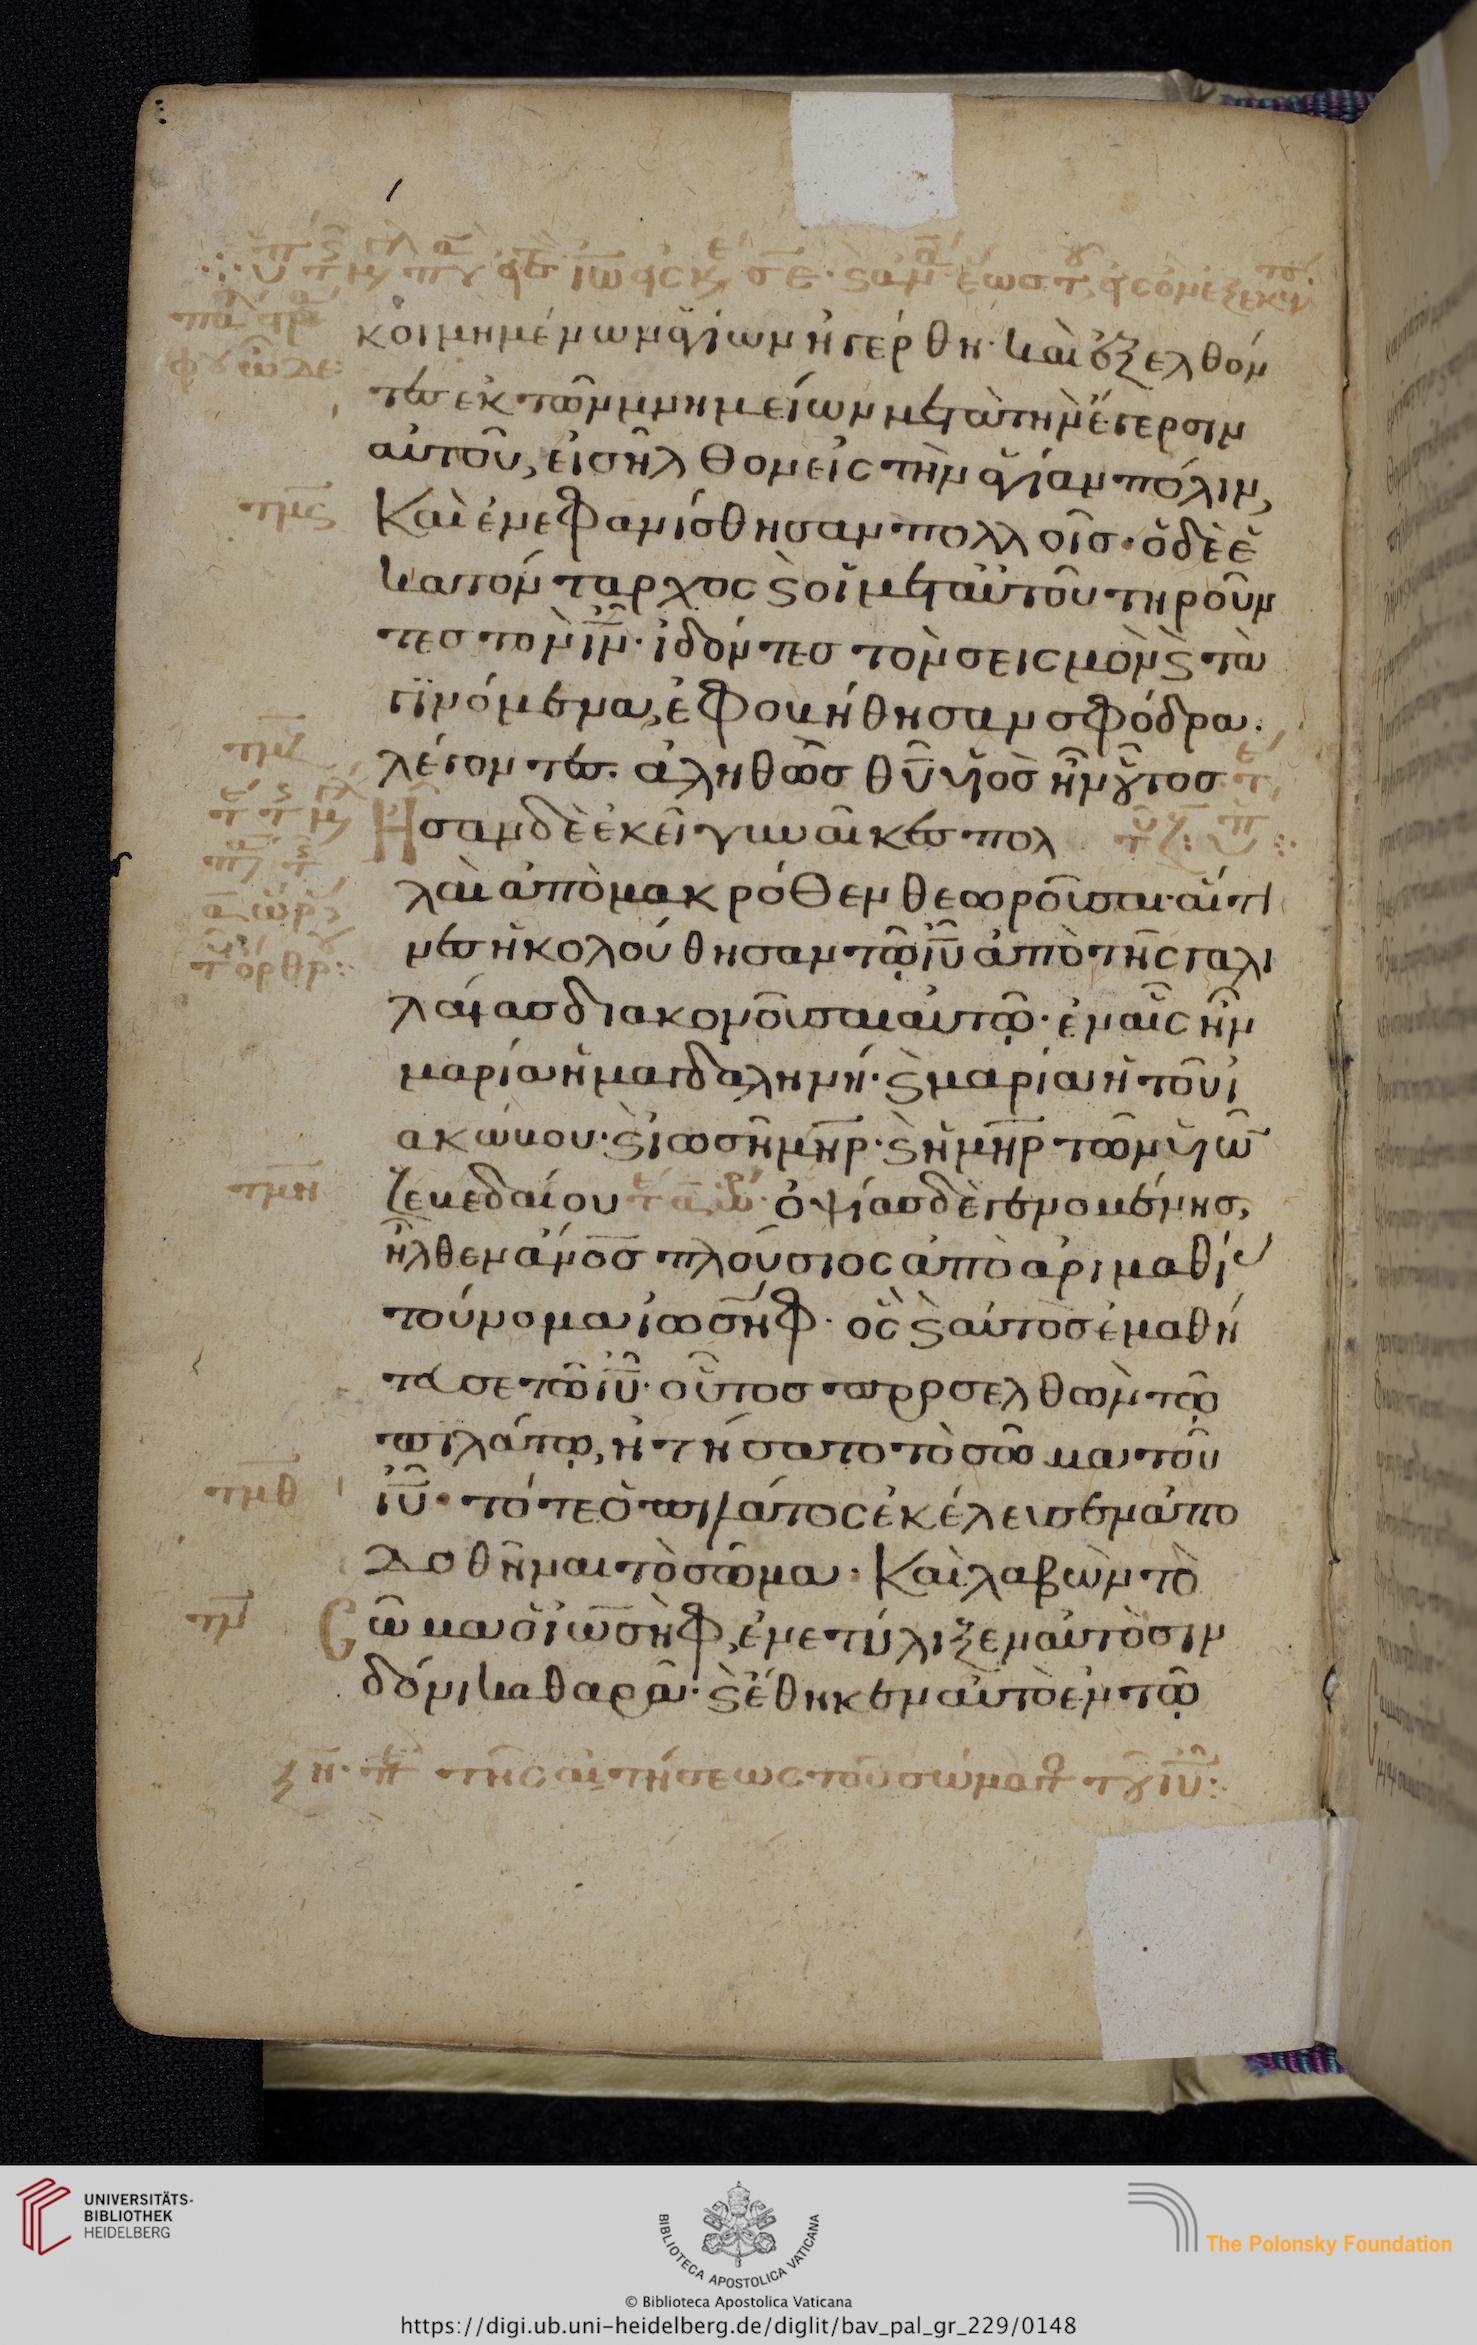 κοιμημένων ἁγίων ἠγέρθη· καὶ ἐξελθόν
τες ἐκ τῶν μνημείων μετὰ τὴν ἔγερσιν
αὐτοῦ, εἰσῆλθον εἰς τὴν ἁγίαν πόλιν,
τμς Καὶ ἐνεφανίσθησαν πολλοῖς· ὁ δὲ ἑ
κατόνταρχος ϗ οἱ μετ αὐτοῦ τηροῦν
τες τὸν ῑν̄· ἰδόντες τὸν σεισμὸν ϗ τὰ
γϊνόμενα, ἐφοβήθησαν σφόδρα.
τμζ λέγοντες. ἀληθῶς θ̄ῡ υἱὸς ἦν οὗτος
Ἦσαν δὲ ἐκεῖ γυναῖκες πολ
λαὶ ἀπὸ μακρόθεν θεωροῦσαι· αἵτι
νες ἠκολούθησαν τῷ ῑῡ ἀπὸ τῆς γαλι
λαίας διακονοῦσαι αὐτῷ· ἐν αἷς ἦν
μαρία ἡ μαγδαληνή· ϗ μαρία ἡ τοῦ ἰ
ακώβου· ϗ ἰωσῆ μ̄η̄ρ̄· ϗ ἡ μ̄η̄ρ̄ τῶν υἱῶ
τμη ζεβεδαίου ὀψίας δὲ γενομένης,
ἦλθεν ἄν̄ο̄ς̄ πλούσιος ἀπὸ ἀριμαθί
τούνομα ἰωσὴφ· ὃς ϗ αὐτὸς ἐμαθή
τευσε τῷ ῑῡ· οὗτος προσελθὼν τῷ
πιλάτῳ, ἠτήσατο τὸ σῶμα τοῦ
τμθ ῑῡ· τότε ὁ πιλάτος ἐκέλευσεν ἀπο
δοθῆναι τὸ σῶμα· Καὶ λαβὼν τὸ
τν Σῶμα ὁ ἰωσὴφ, ἐνετύλιξεν αὐτὸ σιν
δόνι καθαρᾷ· ϗ ἔθηκεν αὐτὸ ἐν τῷ
ξη· π τῆς αἰτήσεως τοῦ σώματ τοῦ ῑῡ:
UNIVERSITÄTS-
BIBLIOTHEK
HEIDELBERG
BIBLIOTECA APOSTOLICA VATICANA
© Biblioteca Apostolica Vaticana
The Polonsky Foundation
https://digi.ub.uni-heidelberg.de/diglit/bav_pal_gr_229/0148